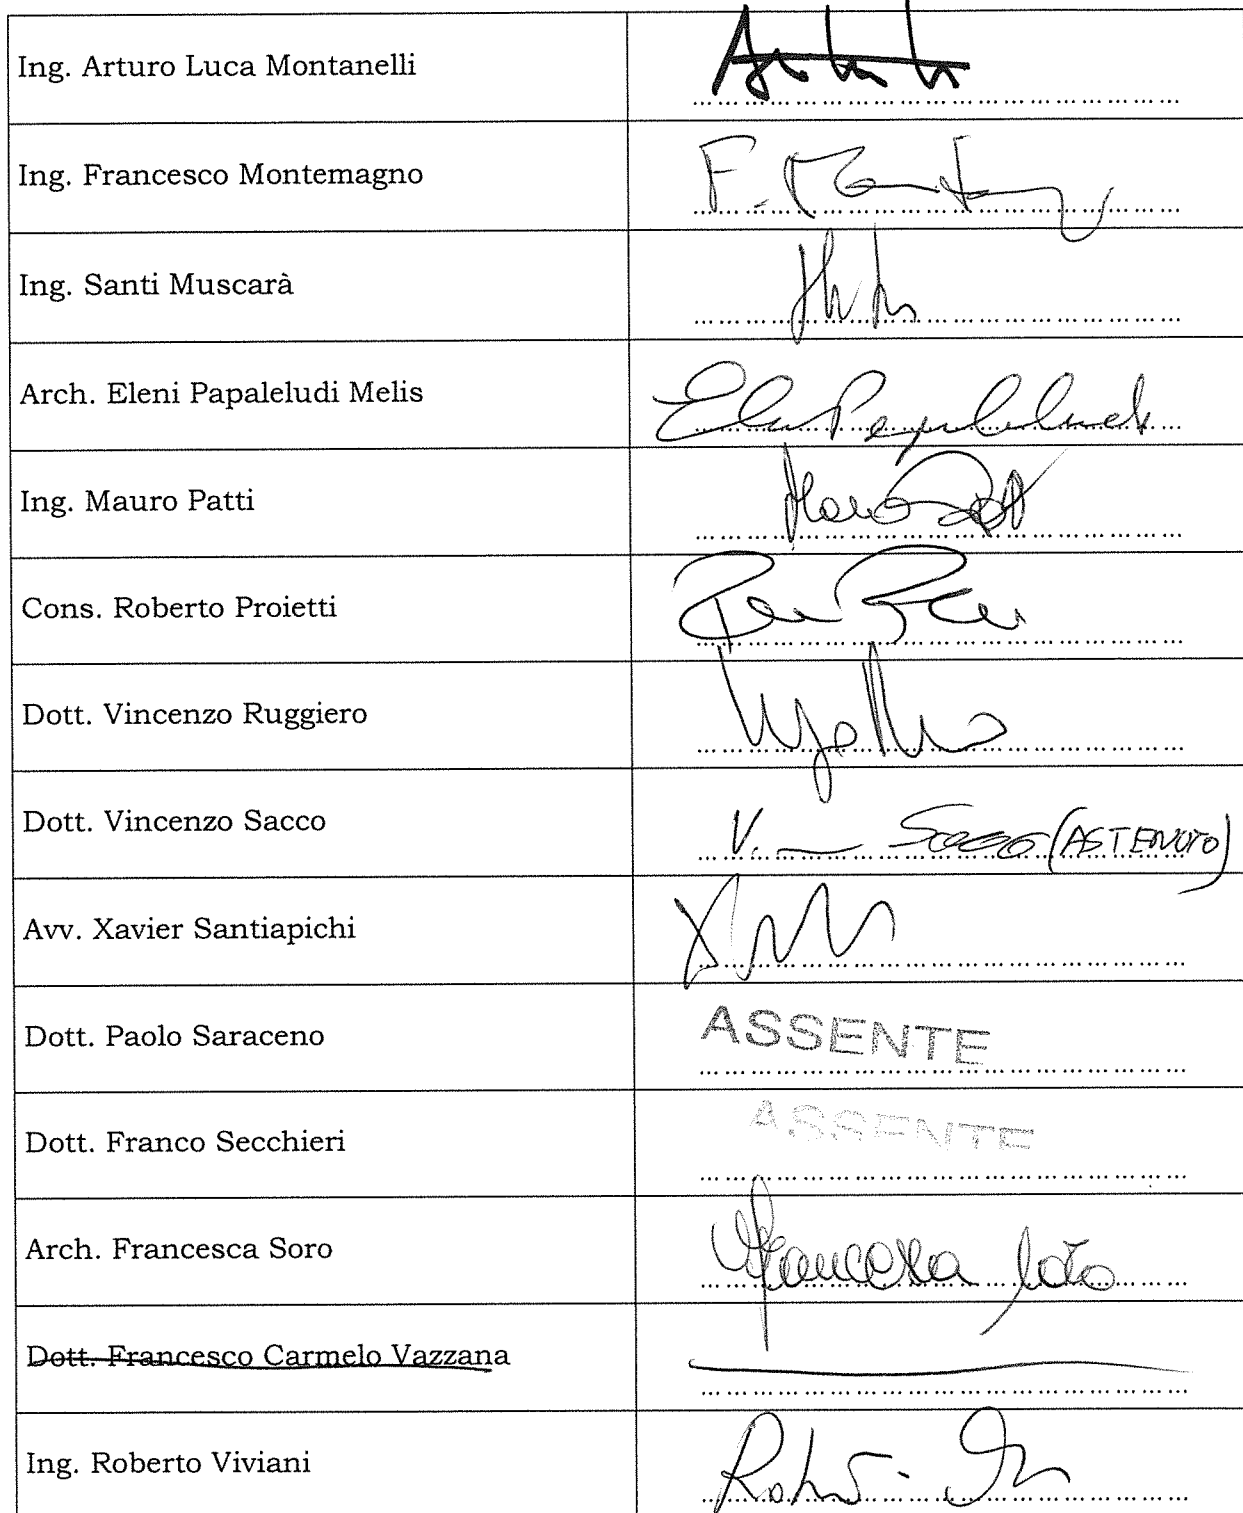 Ing. Arturo Luca Montanelli
Ing. Francesco Montemagno
Ing. Santi Muscarà
Arch. Eleni Papaleludi Melis
Ing. Mauro Patti
Cons. Roberto Proietti
Dott. Vincenzo Ruggiero
Dott. Vincenzo Sacco
V. Sacco (ASTENUTO)
Avv. Xavier Santiapichi
Dott. Paolo Saraceno
ASSENTE
Dott. Franco Secchieri
ASSENTE
Arch. Francesca Soro
Francesca Soro
Dott. Francesco Carmelo Vazzana
Ing. Roberto Viviani